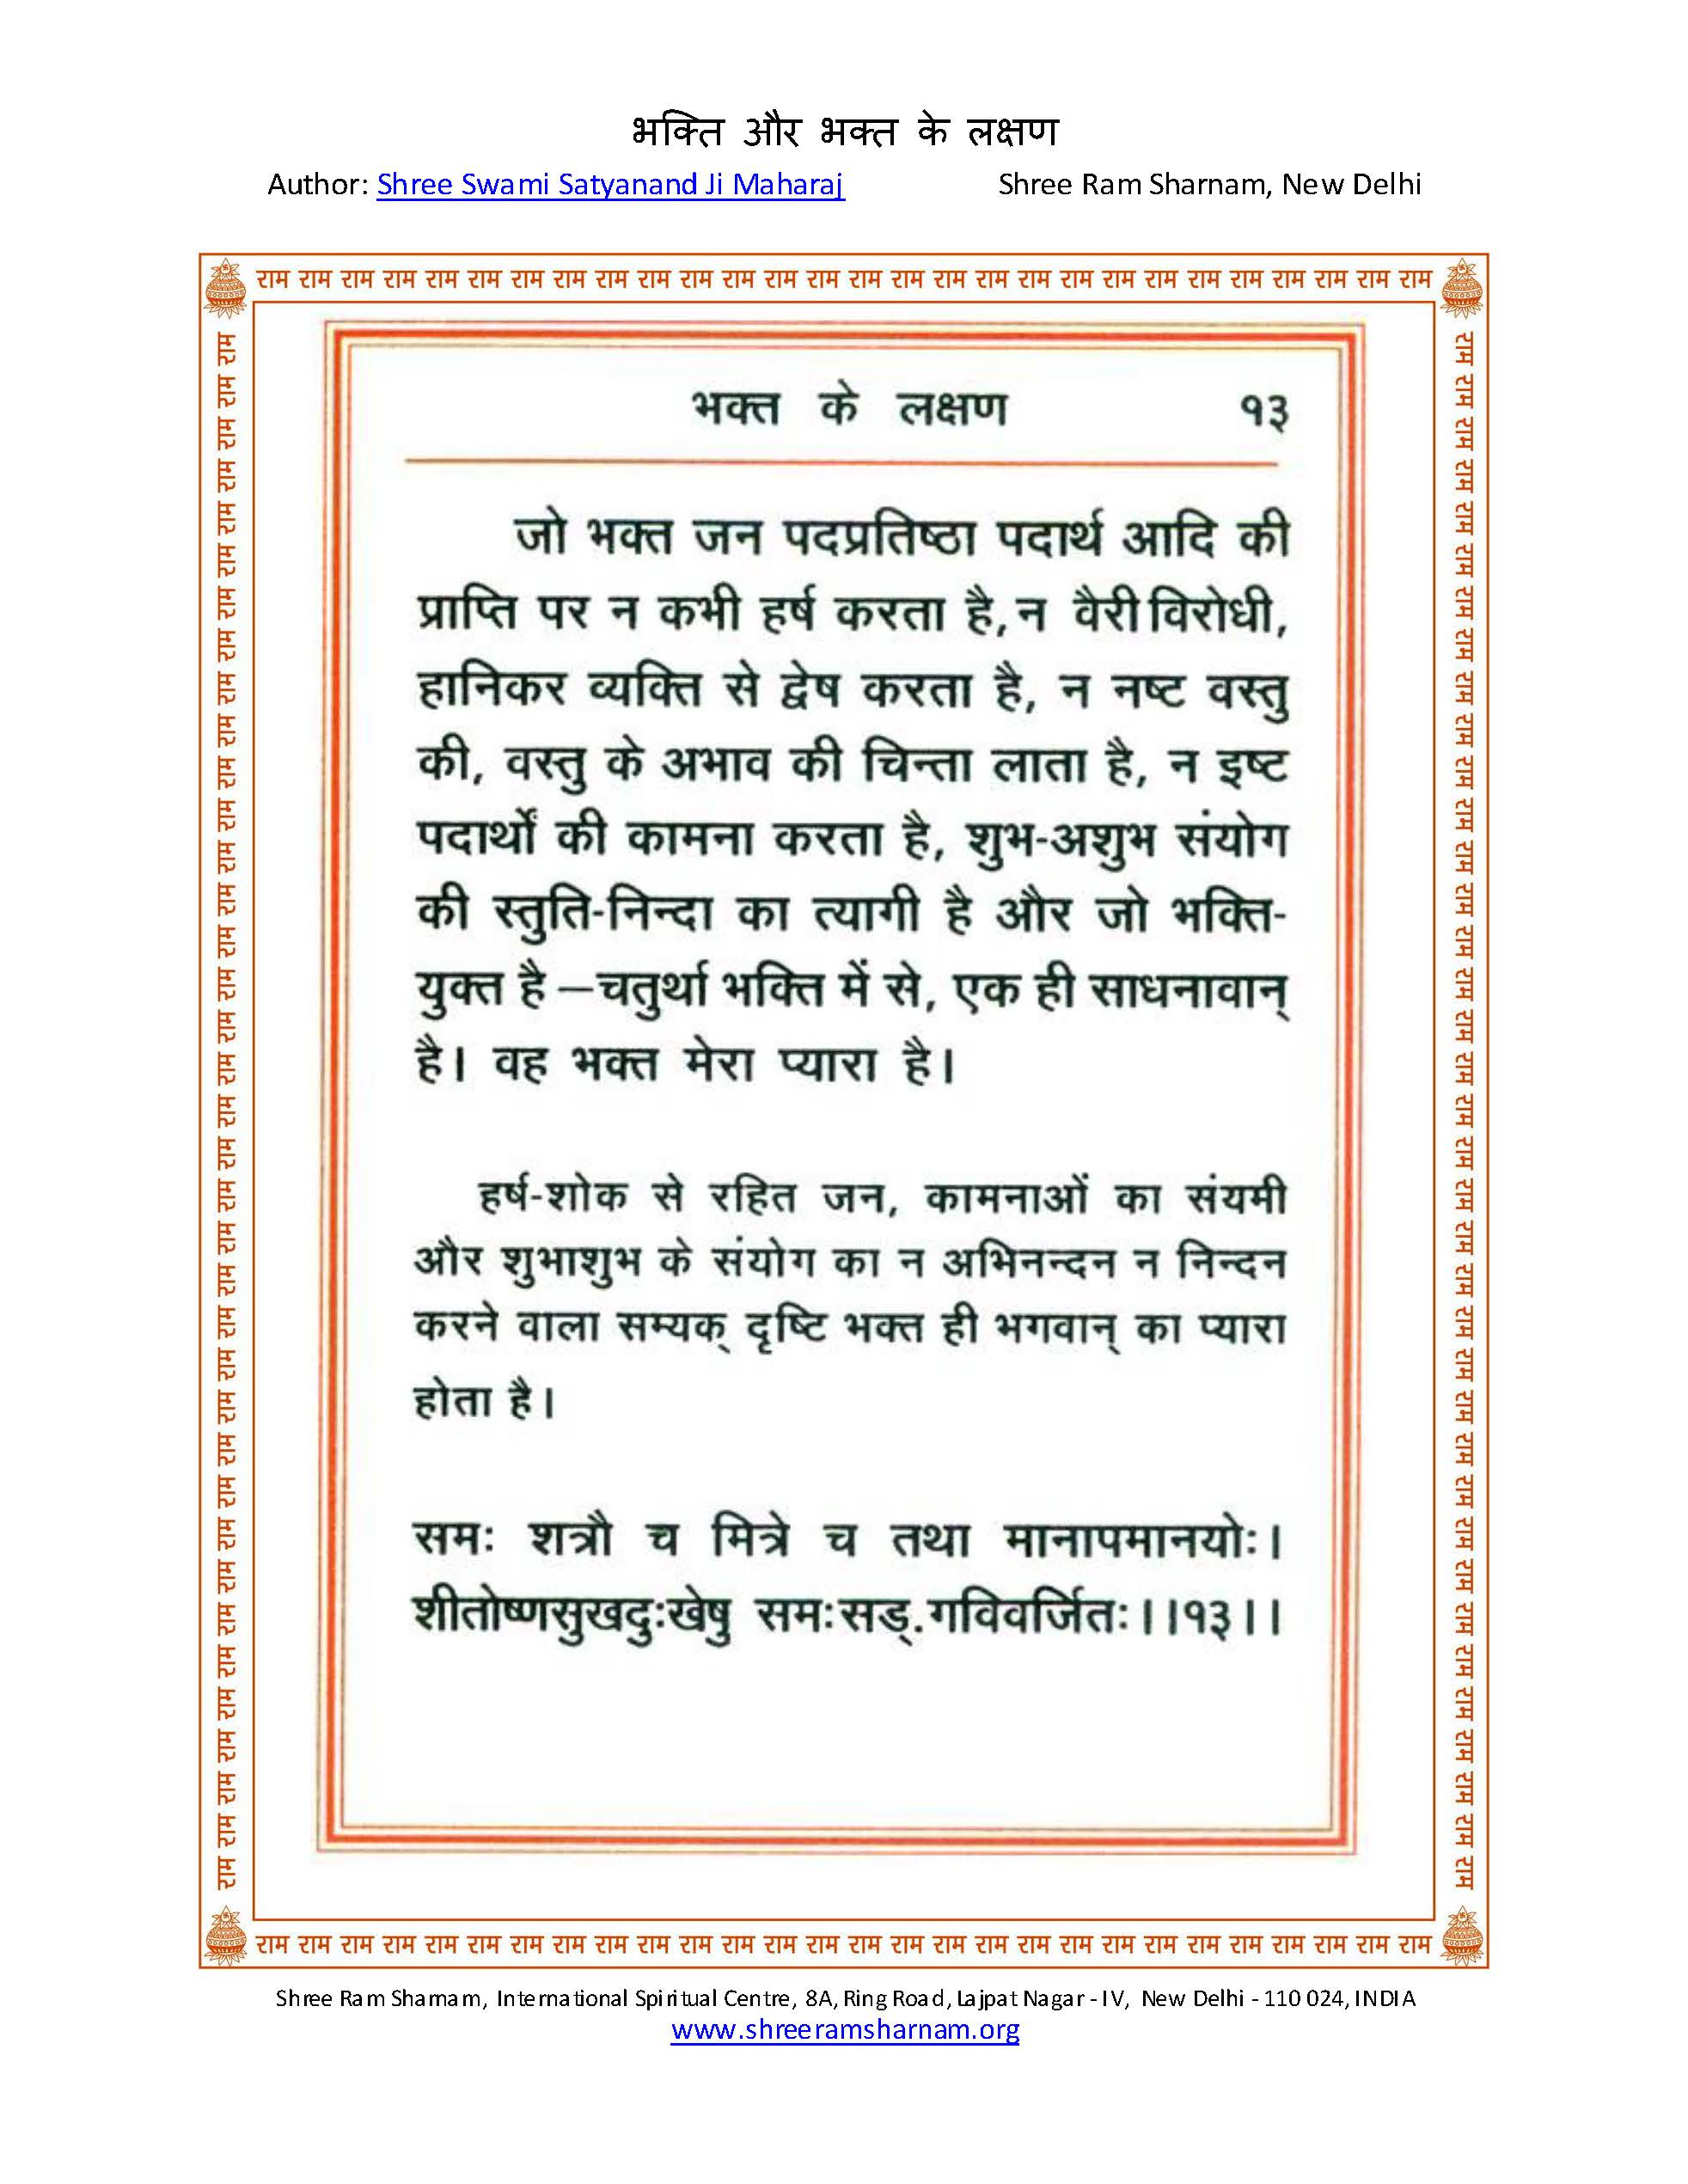 भक्ति और भक्त के लक्षण
Author: Shree Swami Satyanand Ji Maharaj Shree Ram Sharnam, New Delhi
राम राम राम राम राम राम राम राम राम राम राम राम राम राम राम राम राम राम राम राम राम राम राम राम राम राम राम राम
भक्त के लक्षण १३
जो भक्त जन पदप्रतिष्ठा पदार्थ आदि की
प्राप्ति पर न कभी हर्ष करता है, न वैरी विरोधी,
हानिकर व्यक्ति से द्वेष करता है, न नष्ट वस्तु
की, वस्तु के अभाव की चिन्ता लाता है, न इष्ट
पदार्थों की कामना करता है, शुभ-अशुभ संयोग
की स्तुति-निन्दा का त्यागी है और जो भक्ति-
युक्त है –चतुर्था भक्ति में से, एक ही साधनावान्
है। वह भक्त मेरा प्यारा है।
हर्ष-शोक से रहित जन, कामनाओं का संयमी
और शुभाशुभ के संयोग का न अभिनन्दन न निन्दन
करने वाला सम्यक् दृष्टि भक्त ही भगवान् का प्यारा
होता है।
समः शत्रौ च मित्रे च तथा मानापमानयोः।
शीतोष्णसुखदुःखेषु समःसड्.गविवर्जितः।।१३।।
राम राम राम राम राम राम राम राम राम राम राम राम राम राम राम राम राम राम राम राम राम राम राम राम राम राम राम राम
Shree Ram Sharnam, International Spiritual Centre, 8A, Ring Road, Lajpat Nagar - IV, New Delhi - 110 024, INDIA
www.shreeramsharnam.org